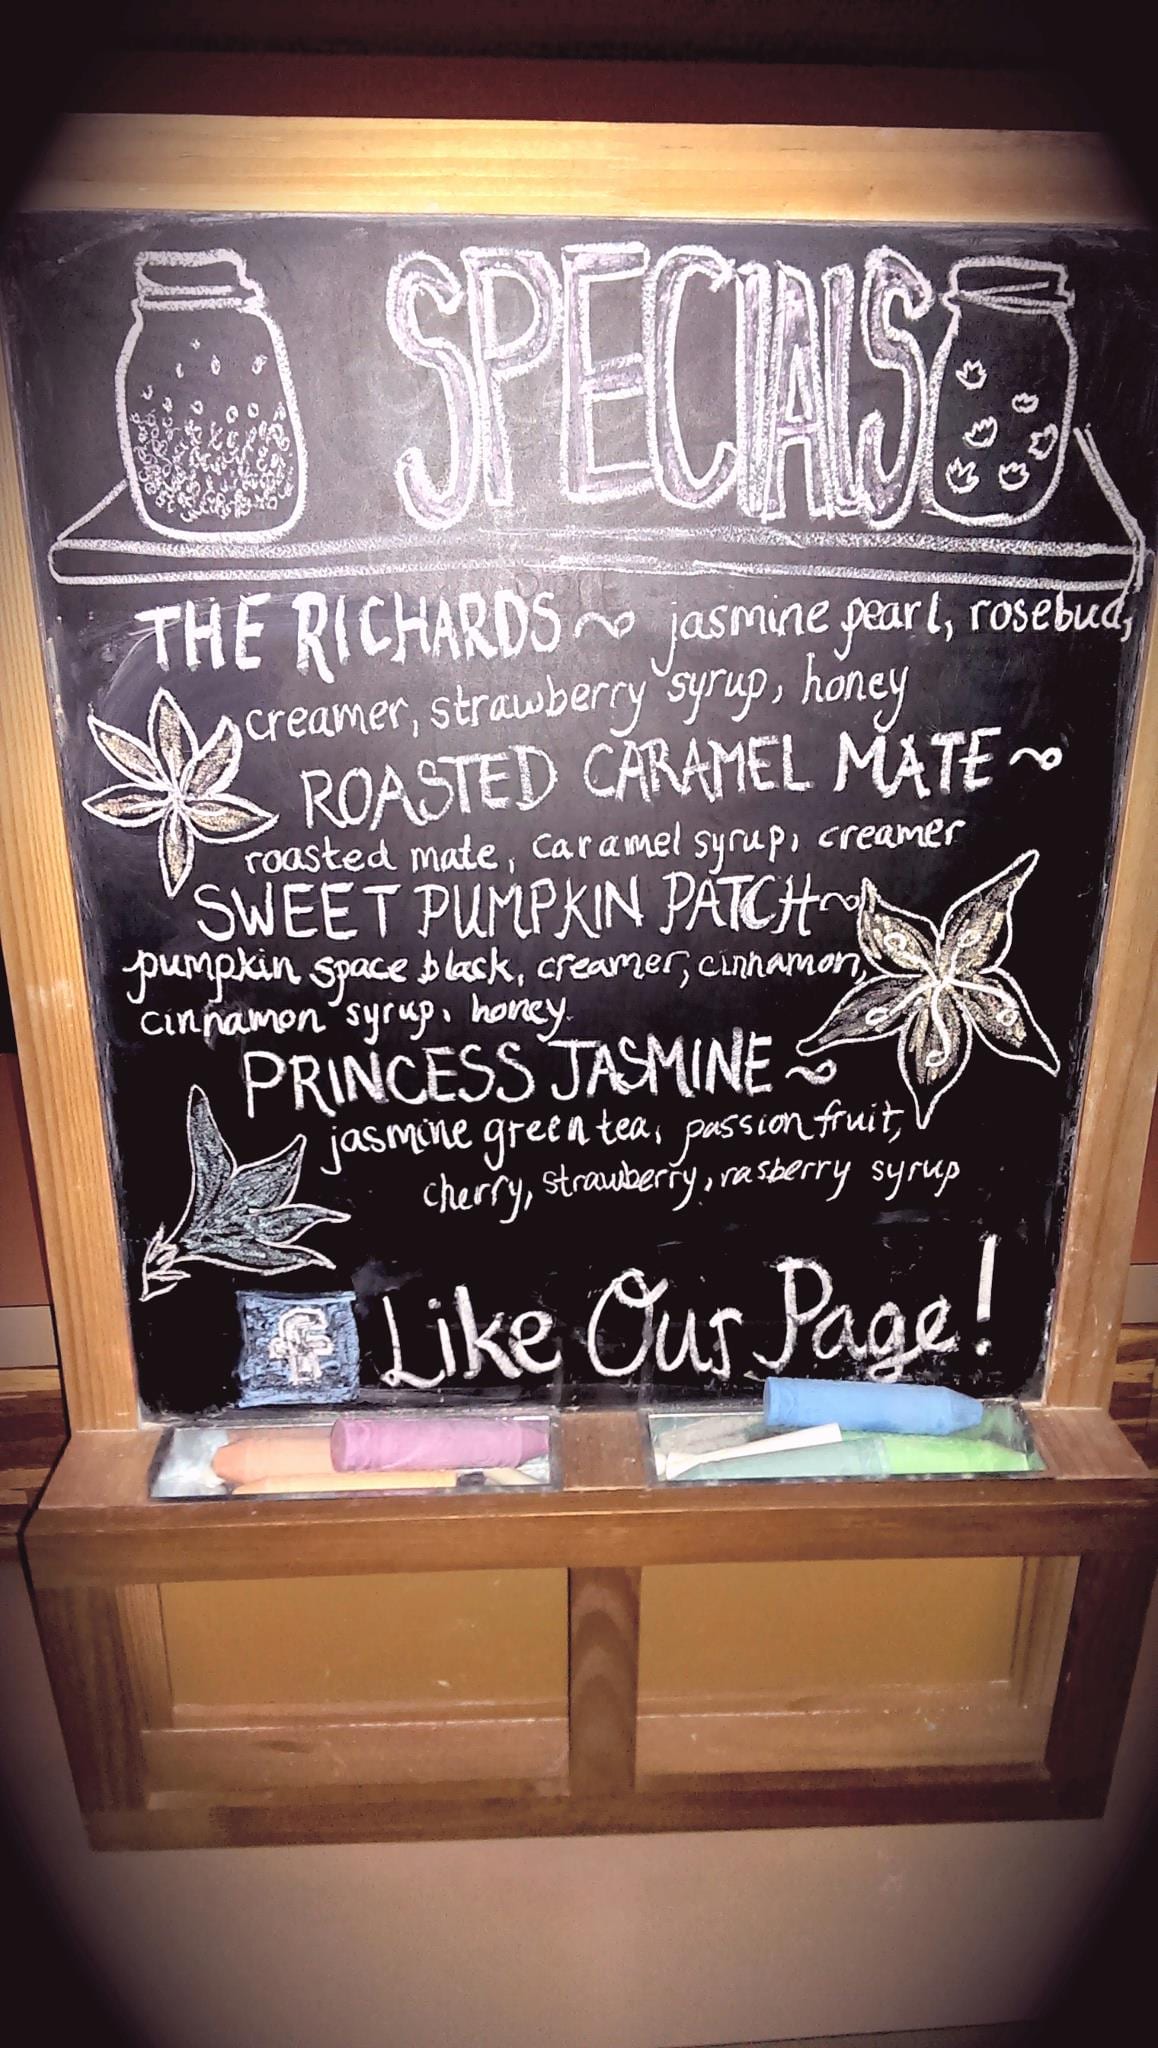 SPECIALS
THE RICHARDS ~ jasmine pearl, rosebud,
creamer, strawberry syrup, honey
ROASTED CARAMEL MATE ~
roasted mate, caramel syrup, creamer
SWEET PUMPKIN PATCH ~
pumpkin space black, creamer, cinnamon,
cinnamon syrup, honey.
PRINCESS JASMINE ~
jasmine green tea, passion fruit,
cherry, strawberry, rasberry syrup
f Like Our Page!